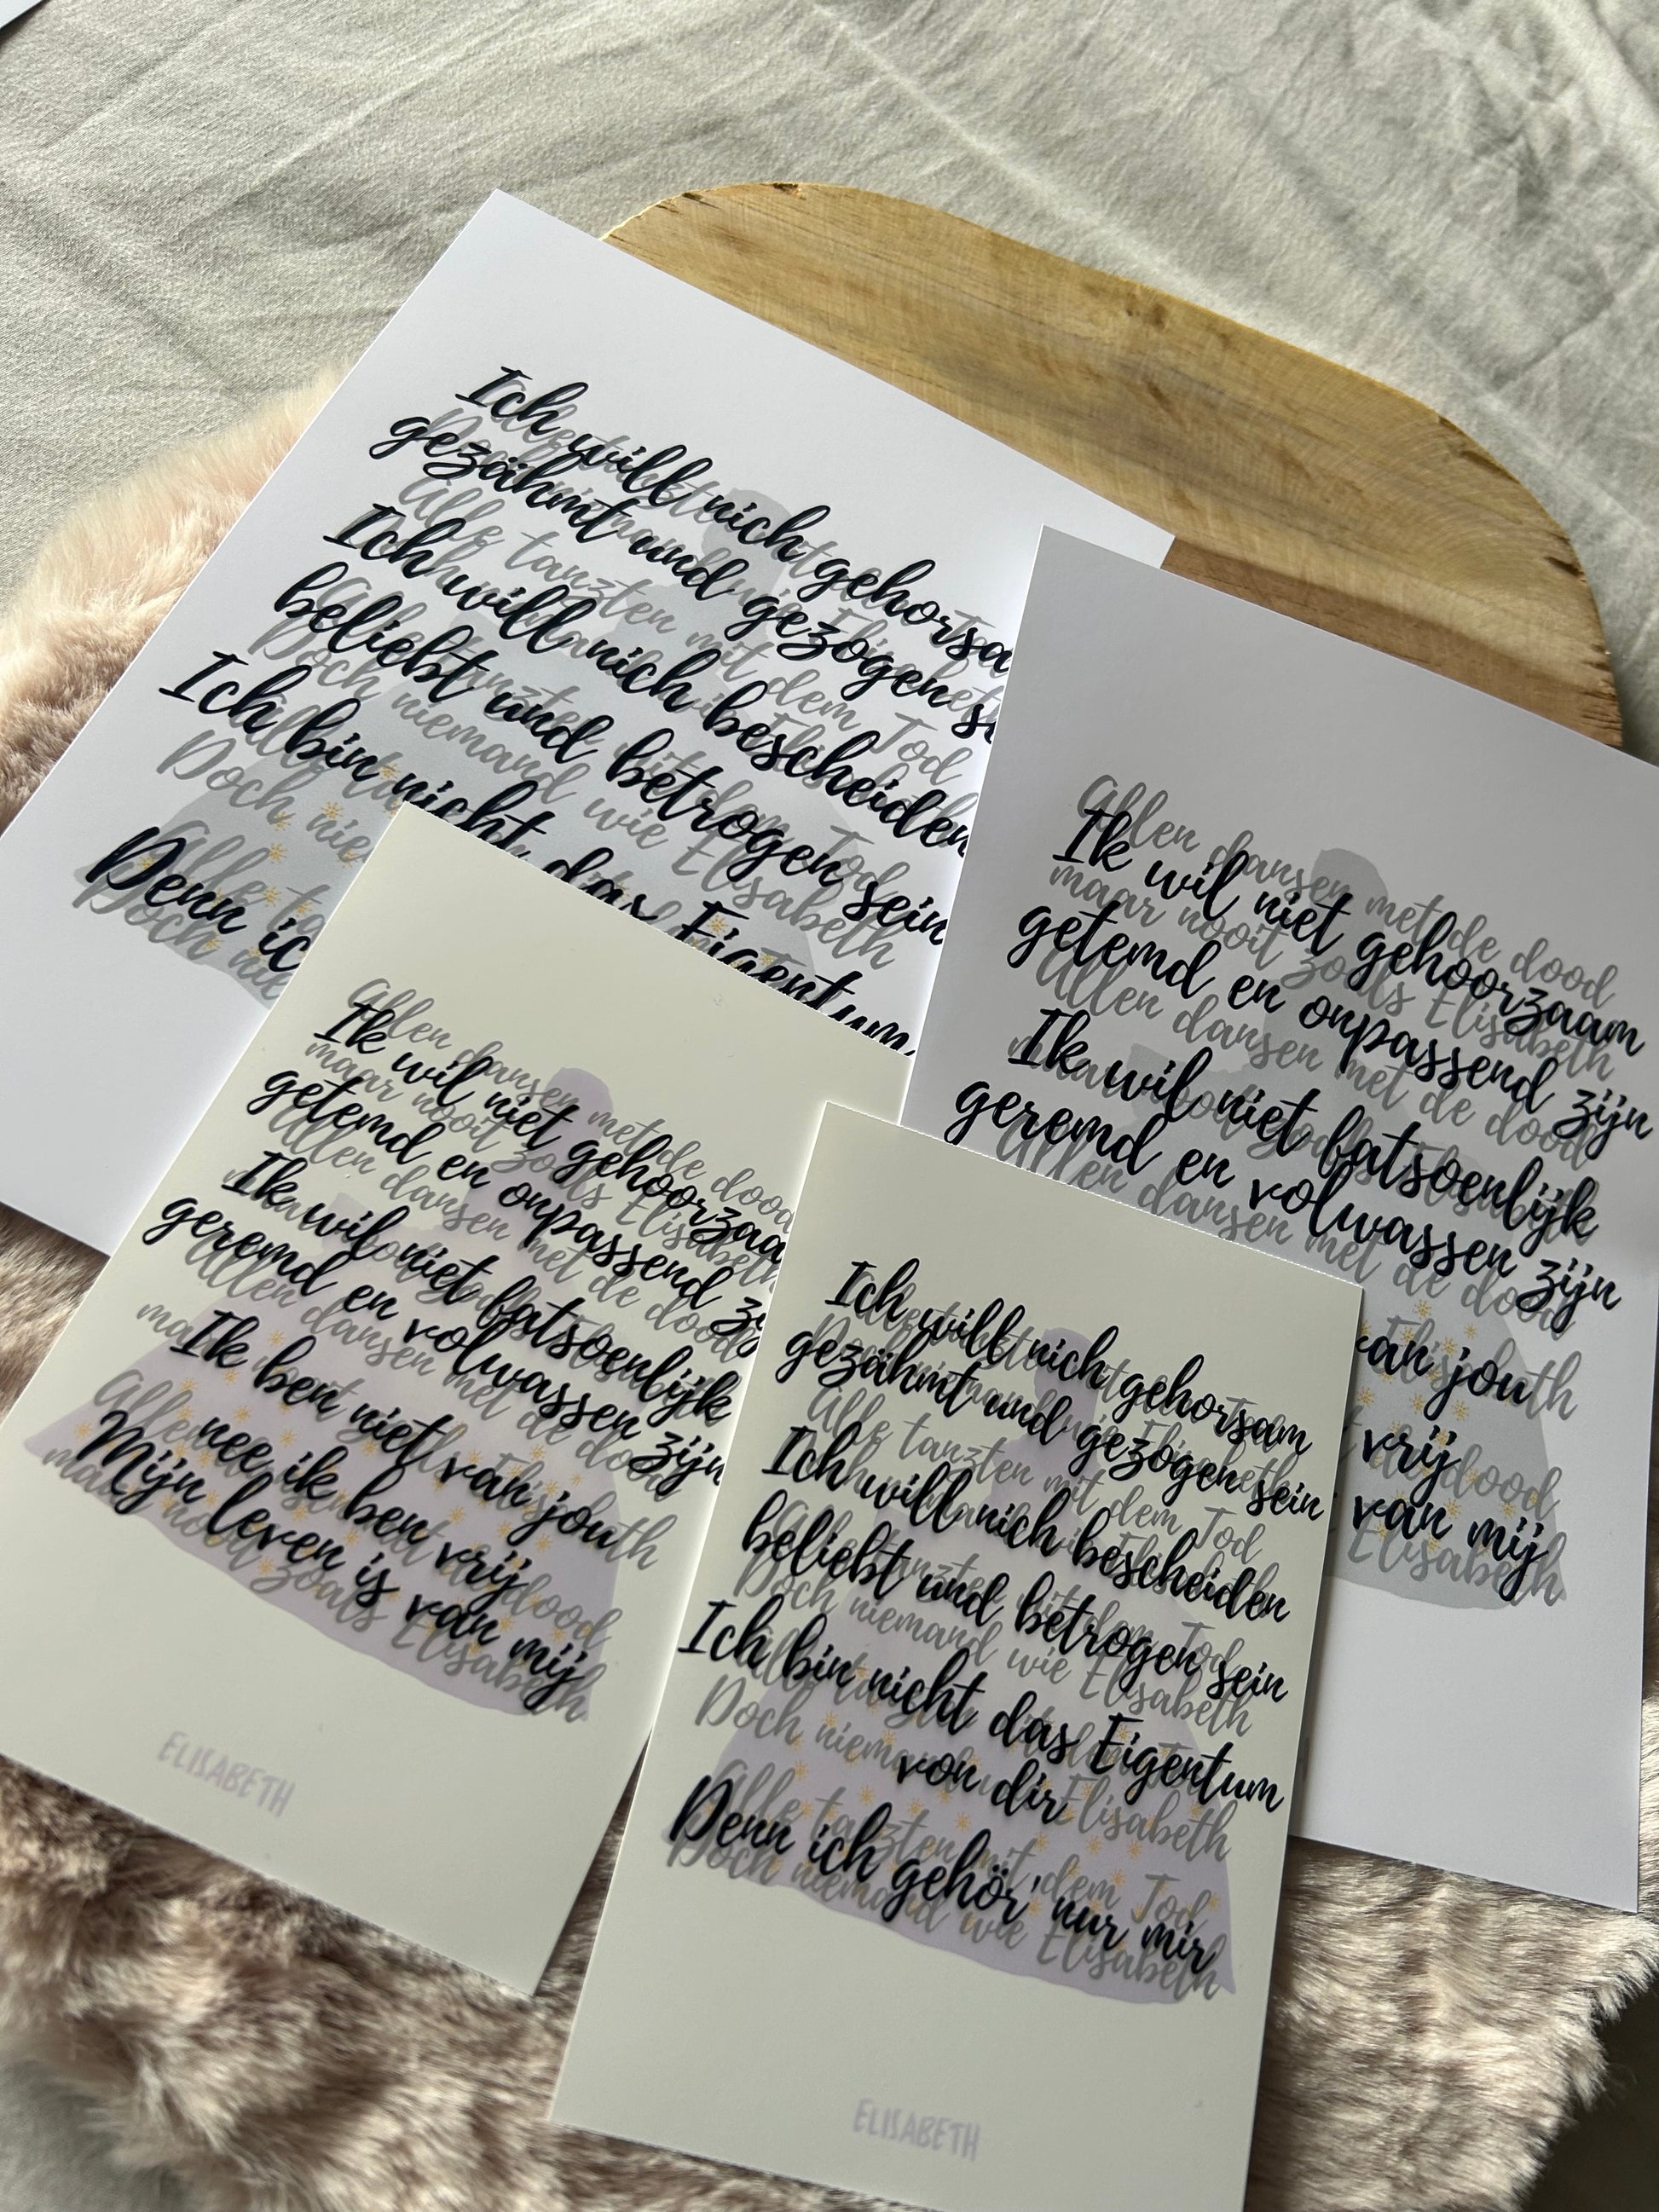 Ich will nich gehorsa
gezähmt und gezogen s
Ich will nich bescheiden
beliebt und betrogen sein
Ich bin nicht das Eigentum
Denn ic
Alle tanzten mit dem Tod
Doch niemand wie Elisabeth
Doch nie
Alle ta
Doch nie
Allen dansen met de dood
Ik wil niet gehoorzaam
maar nooit zoals Elisabeth
getemd en onpassend zijn
Allen dansen met de dood
Ik wil niet fatsoenlijk
geremd en volwassen zijn
Allen dansen met de dood
van jou
vrij
dood
van mij
Elisabeth
Allen dansen met de dood
Ik wil niet gehoorzaa
maar nooit zoals Elisabeth
getemd en onpassend zij
Allen dansen met de dood
Ik wil niet fatsoenlijk
geremd en volwassen zijn
Allen dansen met de dood
Ik ben niet van jou
nee ik ben vrij
dood
Mijn leven is van mij
maar nooit zoals Elisabeth
ELISABETH
Ich will nich gehorsam
gezähmt und gezogen sein
Alle tanzten mit dem Tod
Ich will nich bescheiden
beliebt und betrogen sein
Doch niemand wie Elisabeth
Ich bin nicht das Eigentum
Doch niemand
von dir
Elisabeth
Alle tanzten mit dem Tod
Denn ich gehör' nur mir
Doch niemand wie Elisabeth
ELISABETH